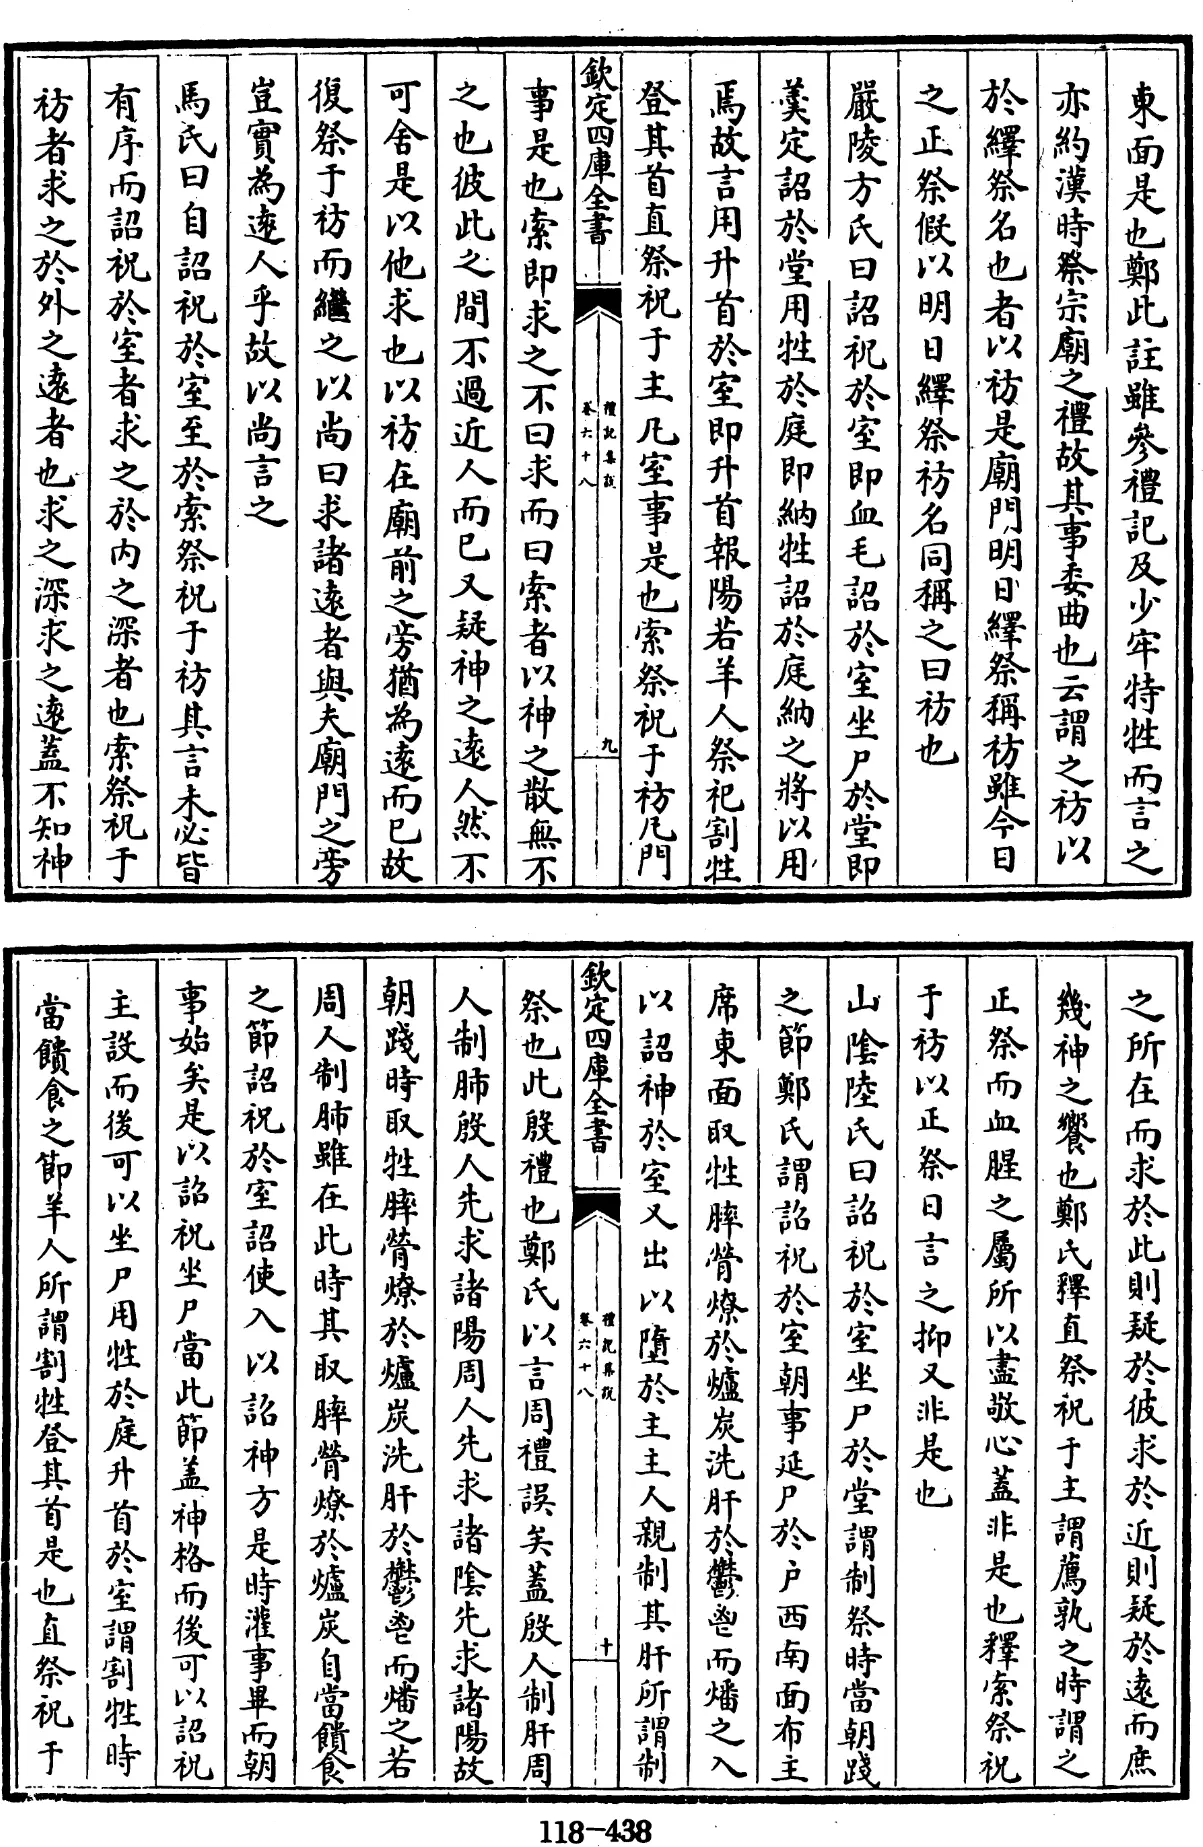 東面是也鄭此註雖參禮記及少牢特牲而言之
亦約漢時祭宗廟之禮故其事委曲也云謂之祊以
於繹祭名也者以祊是廟門明日繹祭稱祊雖今日
之正祭假以明日繹祭祊名同稱之曰祊也
嚴陵方氏曰詔祝於室即血毛詔於室坐尸於堂即
羮定詔於堂用牲於庭即納牲詔於庭納之將以用
焉故言用升首於室即升首報陽若羊人祭祀割牲
登其首直祭祝于主凡室事是也索祭祝于祊凡門
欽定四庫全書
禮記集說
卷六十八
九
事是也索即求之不曰求而曰索者以神之散無不
之也彼此之間不過近人而已又疑神之遠人然不
可舍是以他求也以祊在廟前之旁猶為遠而已故
復祭于祊而繼之以尚曰求諸遠者與夫廟門之旁
豈實為遠人乎故以尚言之
馬氏曰自詔祝於室至於索祭祝于祊其言未必皆
有序而詔祝於室者求之於内之深者也索祭祝于
祊者求之於外之遠者也求之深求之遠蓋不知神
之所在而求於此則疑於彼求於近則疑於遠而庶
幾神之饗也鄭氏釋直祭祝于主謂薦孰之時謂之
正祭而血腥之屬所以盡敬心蓋非是也釋索祭祝
于祊以正祭日言之抑又非是也
山陰陸氏曰詔祝於室坐尸於堂謂制祭時當朝踐
之節鄭氏謂詔祝於室朝事延尸於户西南面布主
席東面取牲膟膋燎於爐炭洗肝於鬱鬯而燔之入
以詔神於室又出以墮於主主人親制其肝所謂制
欽定四庫全書
禮記集說
卷六十八
十
祭也此殷禮也鄭氏以言周禮誤矣蓋殷人制肝周
人制肺殷人先求諸陽周人先求諸陰先求諸陽故
朝踐時取牲膟膋燎於爐炭洗肝於鬱鬯而燔之若
周人制肺雖在此時其取膟膋燎於爐炭自當饋食
之節詔祝於室詔使入以詔神方是時灌事畢而朝
事始矣是以詔祝坐尸當此節蓋神格而後可以詔祝
主設而後可以坐尸用牲於庭升首於室謂割牲時
當饋食之節羊人所謂割牲登其首是也直祭祝于
118-438